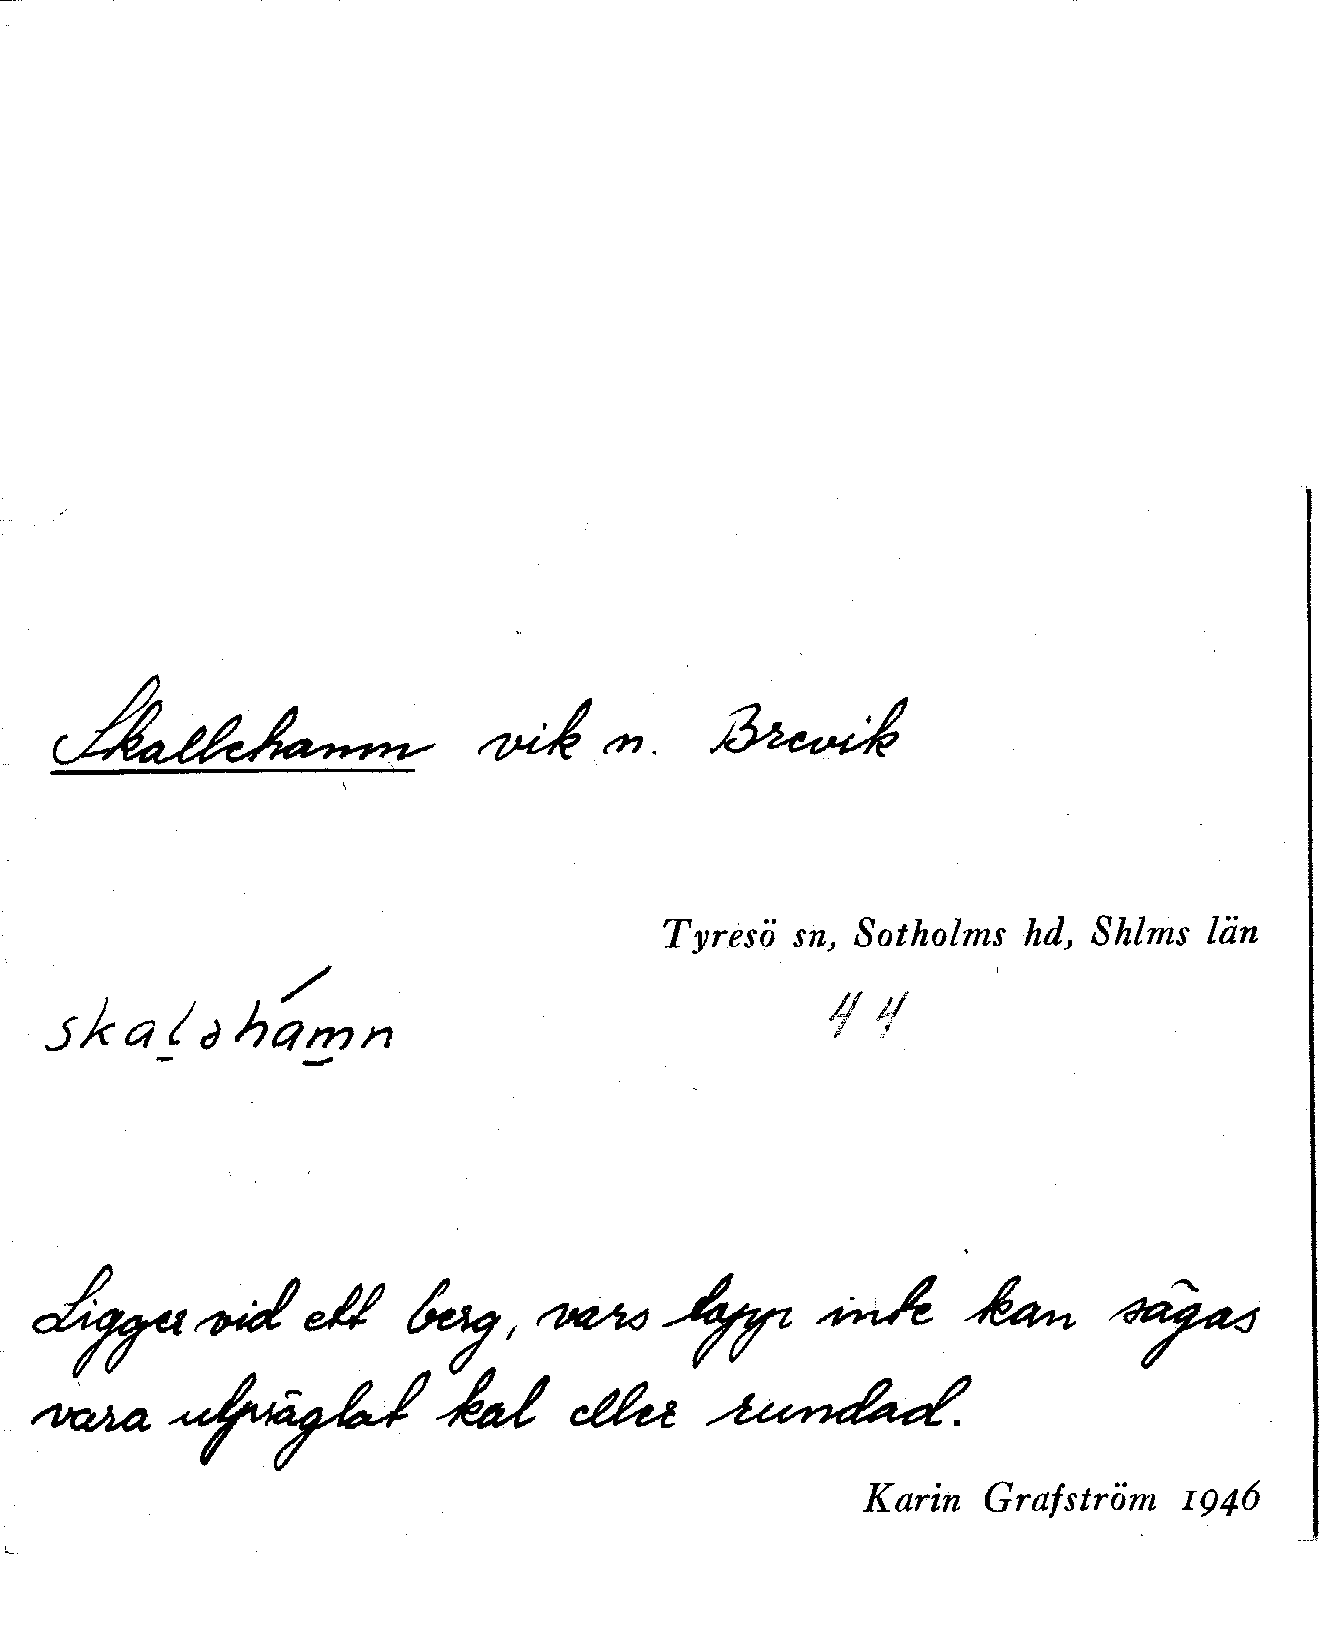 Skallehamn vik n. Brevik
Tyresö sn, Sotholms hd, Shlms län
skal̲əhám̲n
44
Ligger vid ett berg, vars topp inte kan sägas
vara utpräglat kal eller rundad.
Karin Grafström 1946